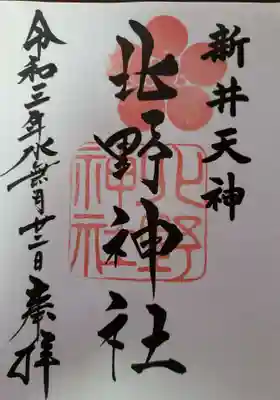 新井天神
北野神社
北野
神社
令和三年水無月廿二日奉拝